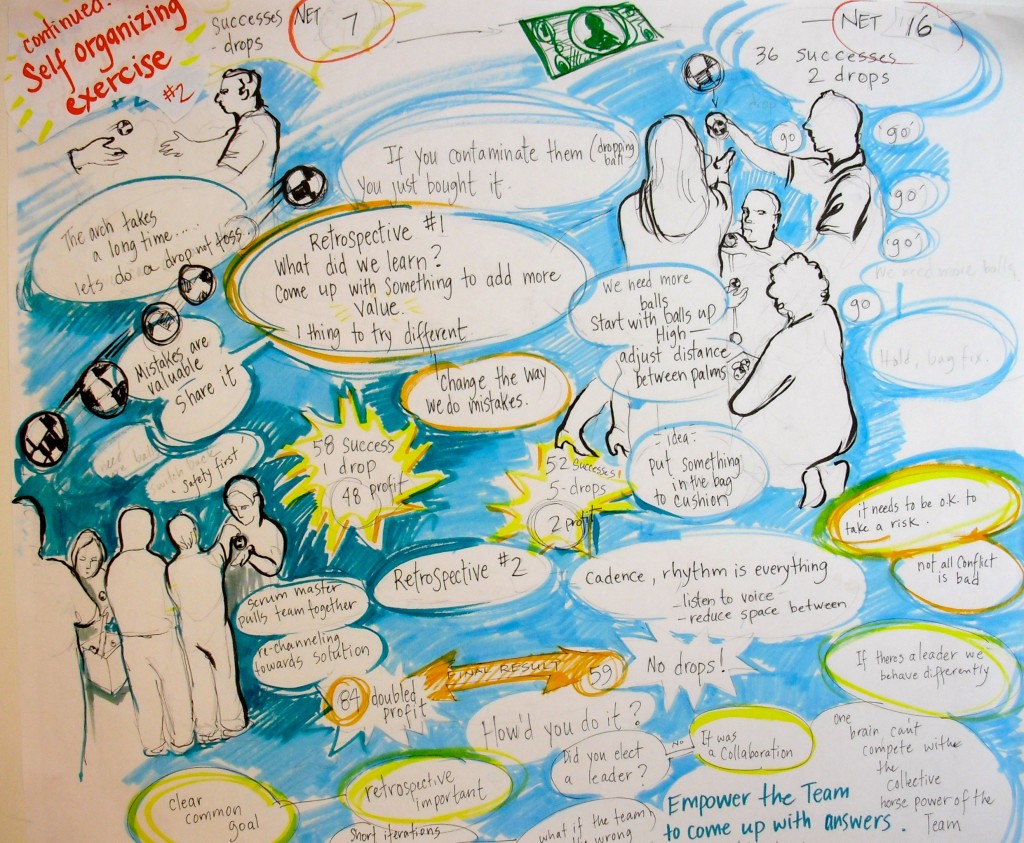 continued:
Self organizing
exercise
#2
successes
- drops
NET 7
NET 16
36 successes
2 drops
If you contaminate them (dropping
ball)
you just bought it.
drop
go
'go'
'go'
'go'
go
We need more balls
Hold, bag fix.
The arch takes
a long time.....
lets do a drop not toss.
Retrospective #1
What did we learn?
Come up with something to add more
value.
1 thing to try different
We need more
balls
Start with balls up
High —
adjust distance
between palms
Mistakes are
valuable
share it
change the way
we do mistakes.
safety first
58 success
1 drop
48 profit
52 successes
5 - drops
2 profit
- idea -
put something
in the bag
to cushion
it needs to be o.k. to
take a risk.
not all conflict
is bad
Retrospective #2
Cadence, rhythm is everything
- listen to voice
- reduce space between
scrum master
pulls team together
re-channeling
towards solution
84 doubled
profit
FINAL RESULT
59
No drops!
If theres a leader we
behave differently
How'd you do it?
Did you elect
a leader?
No
It was
a collaboration
one
brain can't
compete with
the
collective
horse power of the
Team
clear
common
goal
retrospective
important
short iterations
what if the team
wrong
Empower the Team
to come up with answers.